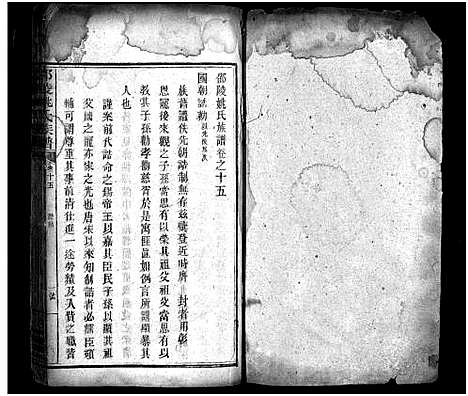 邵陵姚氏族譜卷之十五
國朝誥勅
族舊譜佚先朝誥制無有茲輯登近時膺 封者用彰
恩寵後來觀之子孫當思有以榮其祖父祖父當思有以
教其子孫勸孝勸慈胥於是乎寓匪直如俗言所謂顯暴其
人也
謹案前代誥命之錫帝王以嘉其臣民子孫以顯其祖
父國之寵亦家之光也唐宋以來知制誥者必儒臣碩
輔可謂尊重其事前清仕進一途勞績及入貲之職普
邵陵姚氏族譜 卷十五